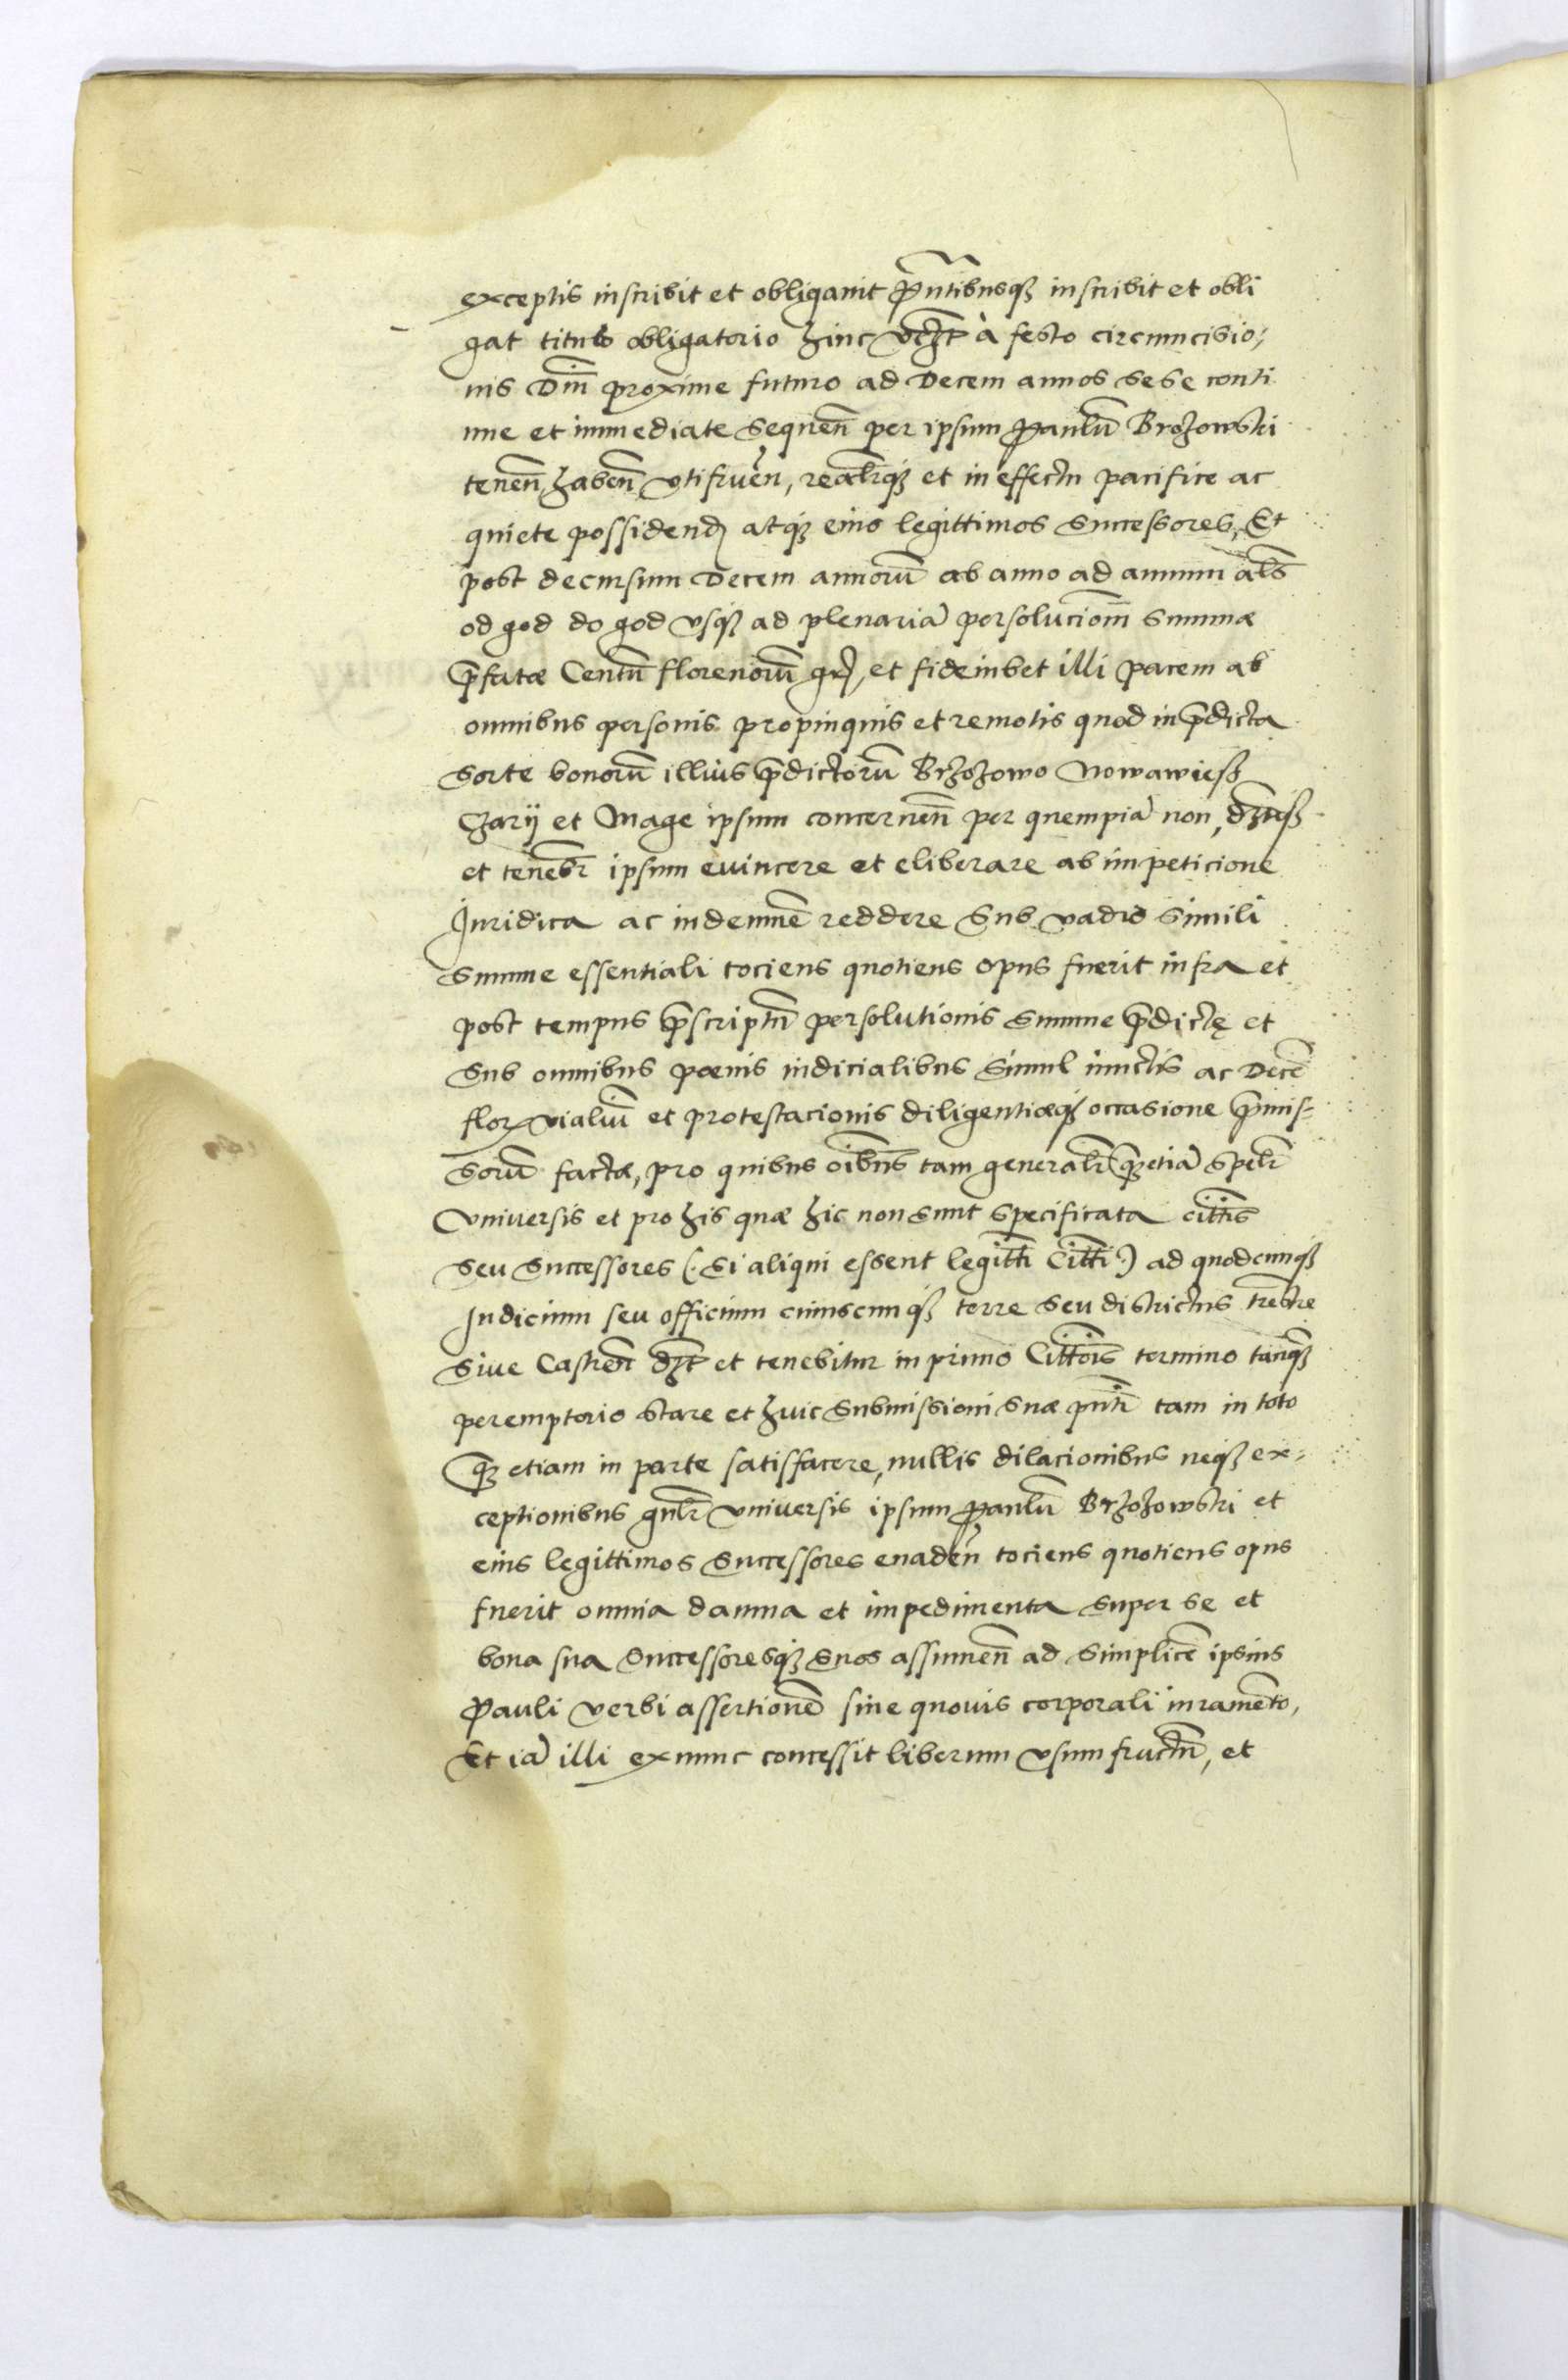 exceptis inscribit et obligauit pn̄tibusq3 inscribit et obli
gat titulo obligatorio hinc vidz̄t à festo circumcisio,
nis Dnī proxime futuro ad Decem annos sese conti
nue et immediate sequen̄ per ipsum Paulū Brzozowski
tenen̄, haben̄ vtifruen̄, realr̄q3 et in effectu pacifice ac
quiete possidend atq3 eius legittimos successores, Et
post decursum Decem annorū ab anno ad annum al̄s
od god do god vsq3 ad plenariā persolucionē summæ
p̄fatæ Centū florenorū gr, et fideiubet illi pacem ab
omnibus personis propinquis et remotis quod in p̄dicta
sorte bonorū illius p̄dictorū Brzozowo Nowawieß
Czarÿ et Mage ipsum concernen̄ per quempiā non,
et tenebr̄ ipsum euincere et eliberare ab impeticione
Juridica ac indemnē reddere Sub vadio simili
summe essentiali tociens quotiens opus fuerit infra et
post tempus p̄scriptū persolutionis summe p̄dictę et
sub omnibus pœnis iudicialibus simul iunctis ac Decē
flor vialiū et protestacionis diligentiæq3 occasione p̄mis-
sorū factæ, pro quibus oībus tam generalr̄ q3 etiā spelr̄
Vniuersis et pro his quæ hic non sunt specificata citt̄is
seu successores (. si aliqui essent legitt̄i Citt̄i .) ad quodcunq3
Judicium seu officium cuiuscunq3 terre seu districtus trestre
siue Castren̄ et tenebitur in primo Citt̄ois termino tanq3
peremptorio stare et huic submissioni suæ pn̄ti tam in toto
q3 etiam in parte satisfacere, nullis dilacionibus neq3 ex-
ceptionibus gnlr̄ vniuersis ipsum Paulū Brzozowski et
eius legittimos successores euaden̄ tociens quotiens opus
fuerit omnia damna et impedimenta super se et
bona sua successoresq3 suos assumen̄ ad simplicē ipsius
Pauli verbi assertionē sine quouis corporali iuramēto,
Et iā illi ex nunc concessit liberum vsumfructū, et